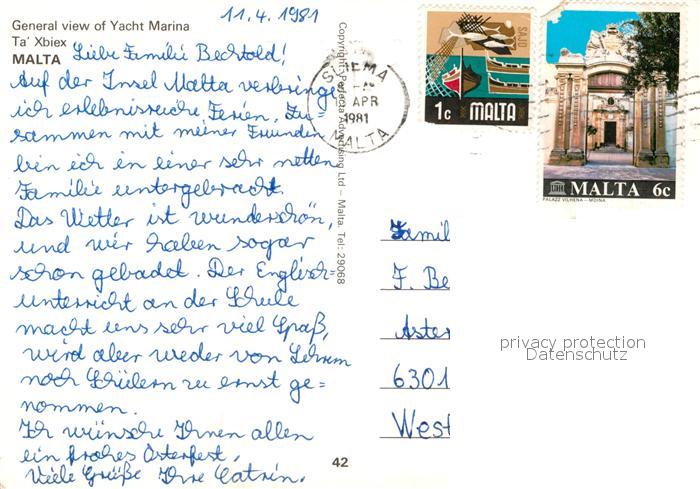 11.4.1981
General view of Yacht Marina
Ta' Xbiex
MALTA
Liebe Familie Bechtold!
Auf der Insel Malta verbringe
ich erlebnisreiche Ferien. Zu=
sammen mit meiner Freundin
bin ich in einer sehr netten
Familie untergebracht.
Das Wetter ist wunderschön,
und wir haben sogar
schon gebadet. Der Englisch=
unterricht an der Schule
macht uns sehr viel Spaß,
wird aber weder von Lehrern
noch Schülern zu ernst ge=
nommen.
Ich wünsche Ihnen allen
ein frohes Osterfest.
Viele Grüße Ihre Catrin.
Copyright Perfecta Advertising Ltd – Malta. Tel: 29068
42
SLIEMA
APR
1981
MALTA
SAJD
1c MALTA
MALTA 6c
PALAZZ VILHENA — MDINA
Famil
F. Be
Aster
6301
West
privacy protection
Datenschutz